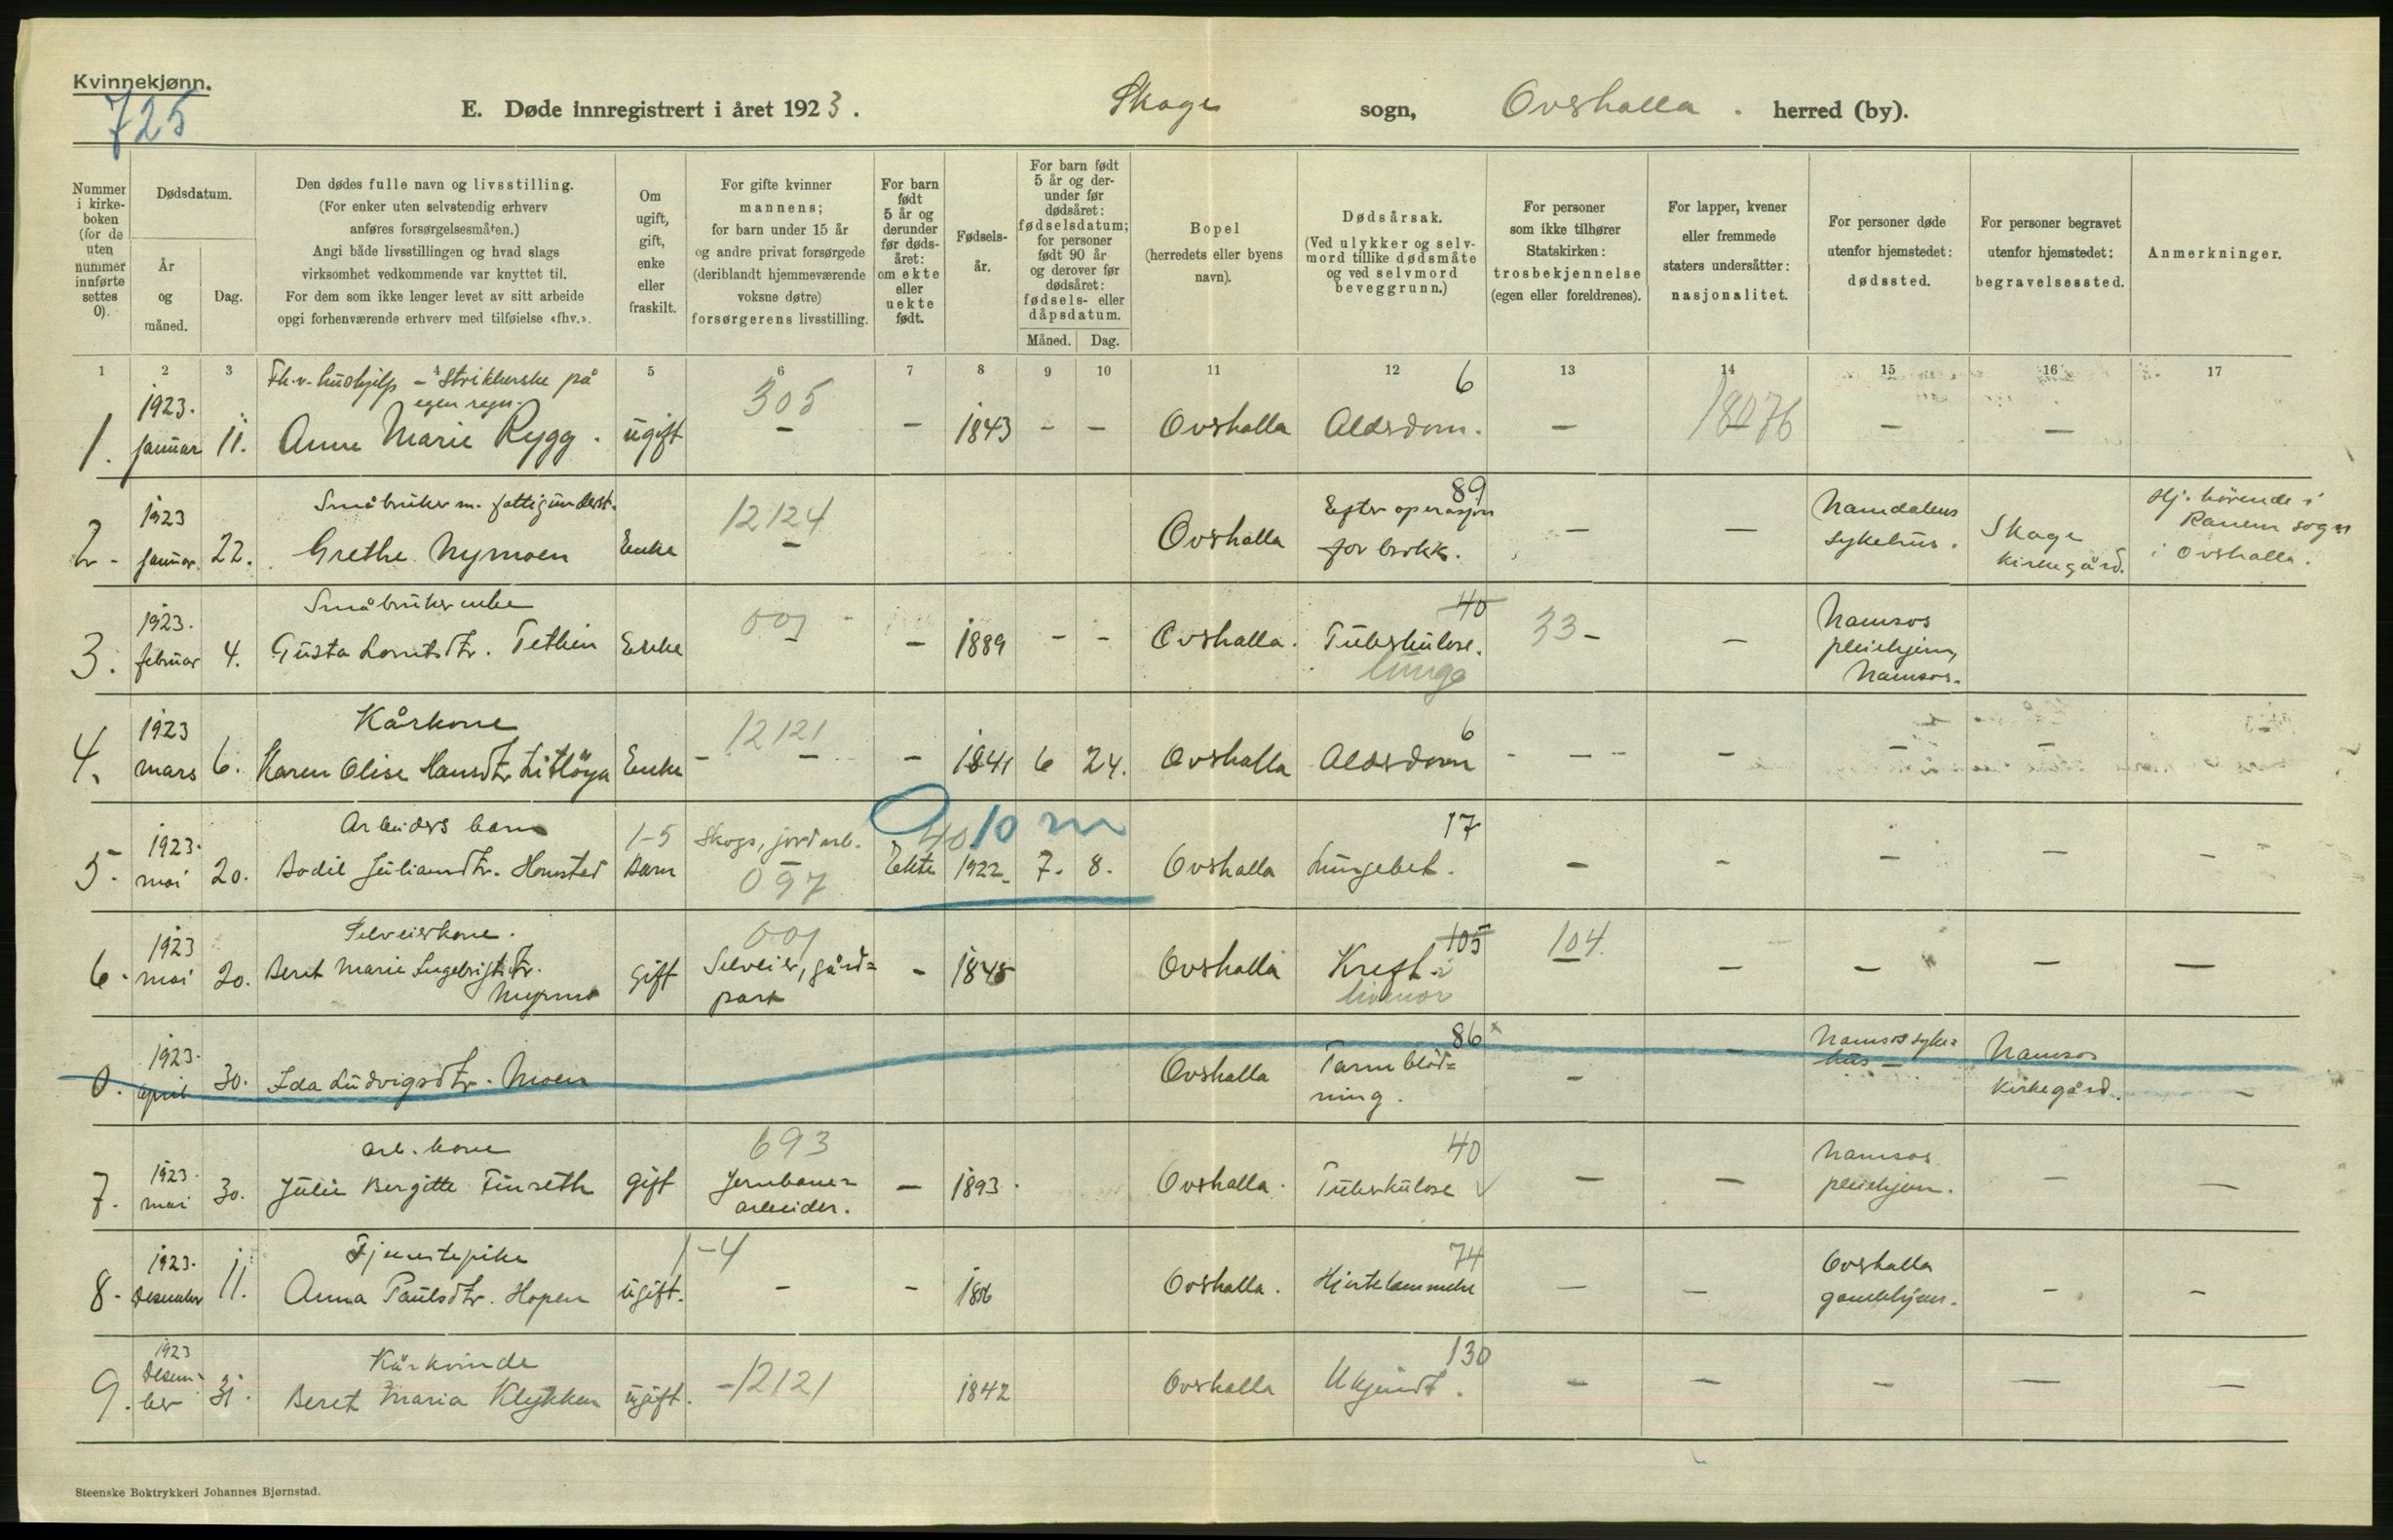 Kvinnekjønn.
725
E. Døde innregistrert i året 1923. Skage sogn, Overhalla. herred (by).
Nummer i kirkeboken (for de uten nummer innførte settes 0).
Dødsdatum.
År og måned.
Dag.
Den dødes fulle navn og livsstilling.
(For enker uten selvstendig erhverv
anføres forsørgelsesmåten.)
Angi både livsstillingen og hvad slags
virksomhet vedkommende var knyttet til.
For dem som ikke lenger levet av sitt arbeide
opgi forhenværende erhverv med tilføielse «fhv.».
Om ugift, gift, enke eller fraskilt.
For gifte kvinner
mannens;
for barn under 15 år
og andre privat forsørgede
(deriblandt hjemmeværende
voksne døtre)
forsørgerens livsstilling.
For barn født 5 år og derunder før dødsåret: om ekte eller uekte født.
Fødselsår.
For barn født 5 år og derunder før dødsåret: fødselsdatum; for personer født 90 år og derover før dødsåret: fødsels- eller dåpsdatum.
Måned. Dag.
Bopel
(herredets eller byens
navn).
Dødsårsak.
(Ved ulykker og selvmord tillike dødsmåte og ved selvmord beveggrunn.)
For personer
som ikke tilhører
Statskirken:
trosbekjennelse
(egen eller foreldrenes).
For lapper, kvener
eller fremmede
staters undersåtter:
nasjonalitet.
For personer døde
utenfor hjemstedet:
dødssted.
For personer begravet
utenfor hjemstedet:
begravelsessted.
Anmerkninger.
1 2 3 4 5 6 7 8 9 10 11 12 13 14 15 16 17
Fh.v. hushjelp - Strikkerske på
egen regn.
305 6
1. 1923. januar 11. Anne Marie Rygg. ugift - - 1843 - - Overhalla Aldersdom. - 18076 - -
Småbruker m. fattigunderst.
12124 89
2. 1923 januar 22. Grethe Nymoen Enke - Overhalla Efter operasjon for brokk. - - Namdalens sykehus. Skage kirkegård. Hj. hörende i Ranem sogn i Overhalla.
Småbrukerenke
001 40
3. 1923. februar 4. Gusta Lorntsdtr. Enke - 1889 - - Overhalla. Tuberkulose. lunge 33 - - Namsos pleiehjem, Namsos.
Kårkone
12121 6
4. 1923 mars 6. Karen Olise Hansdtr. Litlöya Enke - - - 1841 6 24. Overhalla Aldersdom - - - -
Arbeiders barn
1-5 Skogs, jordarb. 40 10 m 17
5. 1923. mai 20. Bodil Juliansdtr. Homstad Barn 097 Ekte 1922. 7. 8. Overhalla Lungebet. - - - - -
Selveierkone.
001 105 104.
6. 1923 mai 20. Beret Marie Ingebrigtsdtr. Myrmo gift Selveier, gårdpart - 1848 Overhalla Kreft i livmor - - - - -
86 x
0. 1923. april 30. Ida Ludvigsdtr. Moen Overhalla Tarmblödning. - - Namsos sykehus - Namsos Kirkegård. -
arb. kone
693 40
7. 1923. mai 30. Julie Bergitte Finseth gift Jernbanearbeider. - 1893. Overhalla. Tuberkulose - - Namsos pleiehjem. - -
Tjenestepike
1-4 74
8. 1923. Desember 11. Anna Paulsdtr. Hopen ugift. - - Overhalla. Hjertelammelse - - Overhalla gamlehjem. - -
Kårkvinde
12121 130
9. 1923 Desember 31. Beret Maria Klykken ugift. - 1842 Overhalla Ukjendt. - - - - -
Steenske Boktrykkeri Johannes Bjørnstad.